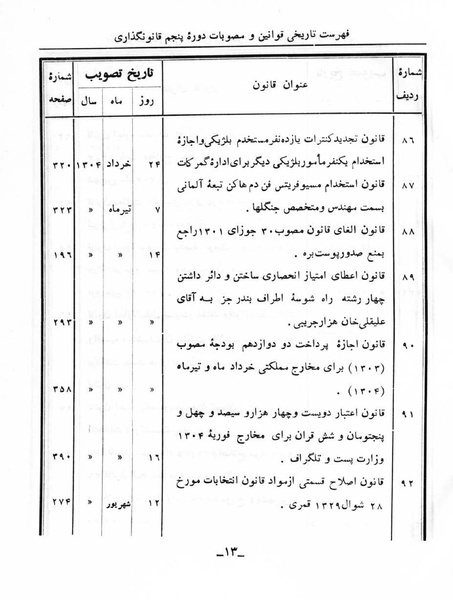 فهرست تاریخی قوانین و مصوبات دورهٔ پنجم قانونگذاری
شمارهٔ ردیف | عنوان قانون | تاریخ تصویب: روز | ماه | سال | شمارهٔ صفحه
۸۶ قانون تجدید کنترات یازده نفر مستخدم بلژیکی و اجازهٔ
استخدام یکنفر مأمور بلژیکی دیگر برای ادارهٔ گمرکات ۲۴ خرداد ۱۳۰۴ ۳۲۰
۸۷ قانون استخدام مسیو فریتس فن دم هاکن تبعهٔ آلمانی
بسمت مهندس و متخصص جنگلها. ۷ تیرماه » ۳۲۳
۸۸ قانون الغای قانون مصوب ۳۰ جوزای ۱۳۰۱ راجع
بمنع صدور پوست بره. ۱۴ » » ۱۹۶
۸۹ قانون اعطای امتیاز انحصاری ساختن و دائر داشتن
چهار رشته راه شوسهٔ اطراف بندر جز به آقای
علیقلی‌خان هزارجریبی. » » » ۲۹۳
۹۰ قانون اجازهٔ پرداخت دو دوازدهم بودجهٔ مصوب
(۱۳۰۳) برای مخارج مملکتی خرداد ماه و تیرماه
(۱۳۰۴). » » » ۳۵۸
۹۱ قانون اعتبار دویست و چهار هزار و سیصد و چهل و
پنجتومان و شش قران برای مخارج فوریهٔ ۱۳۰۴
وزارت پست و تلگراف. ۱۶ » » ۳۹۰
۹۲ قانون اصلاح قسمتی از مواد قانون انتخابات مورخ
۲۸ شوال ۱۳۲۹ قمری. ۱۲ شهریور » ۲۷۴
ـ۱۳ـ